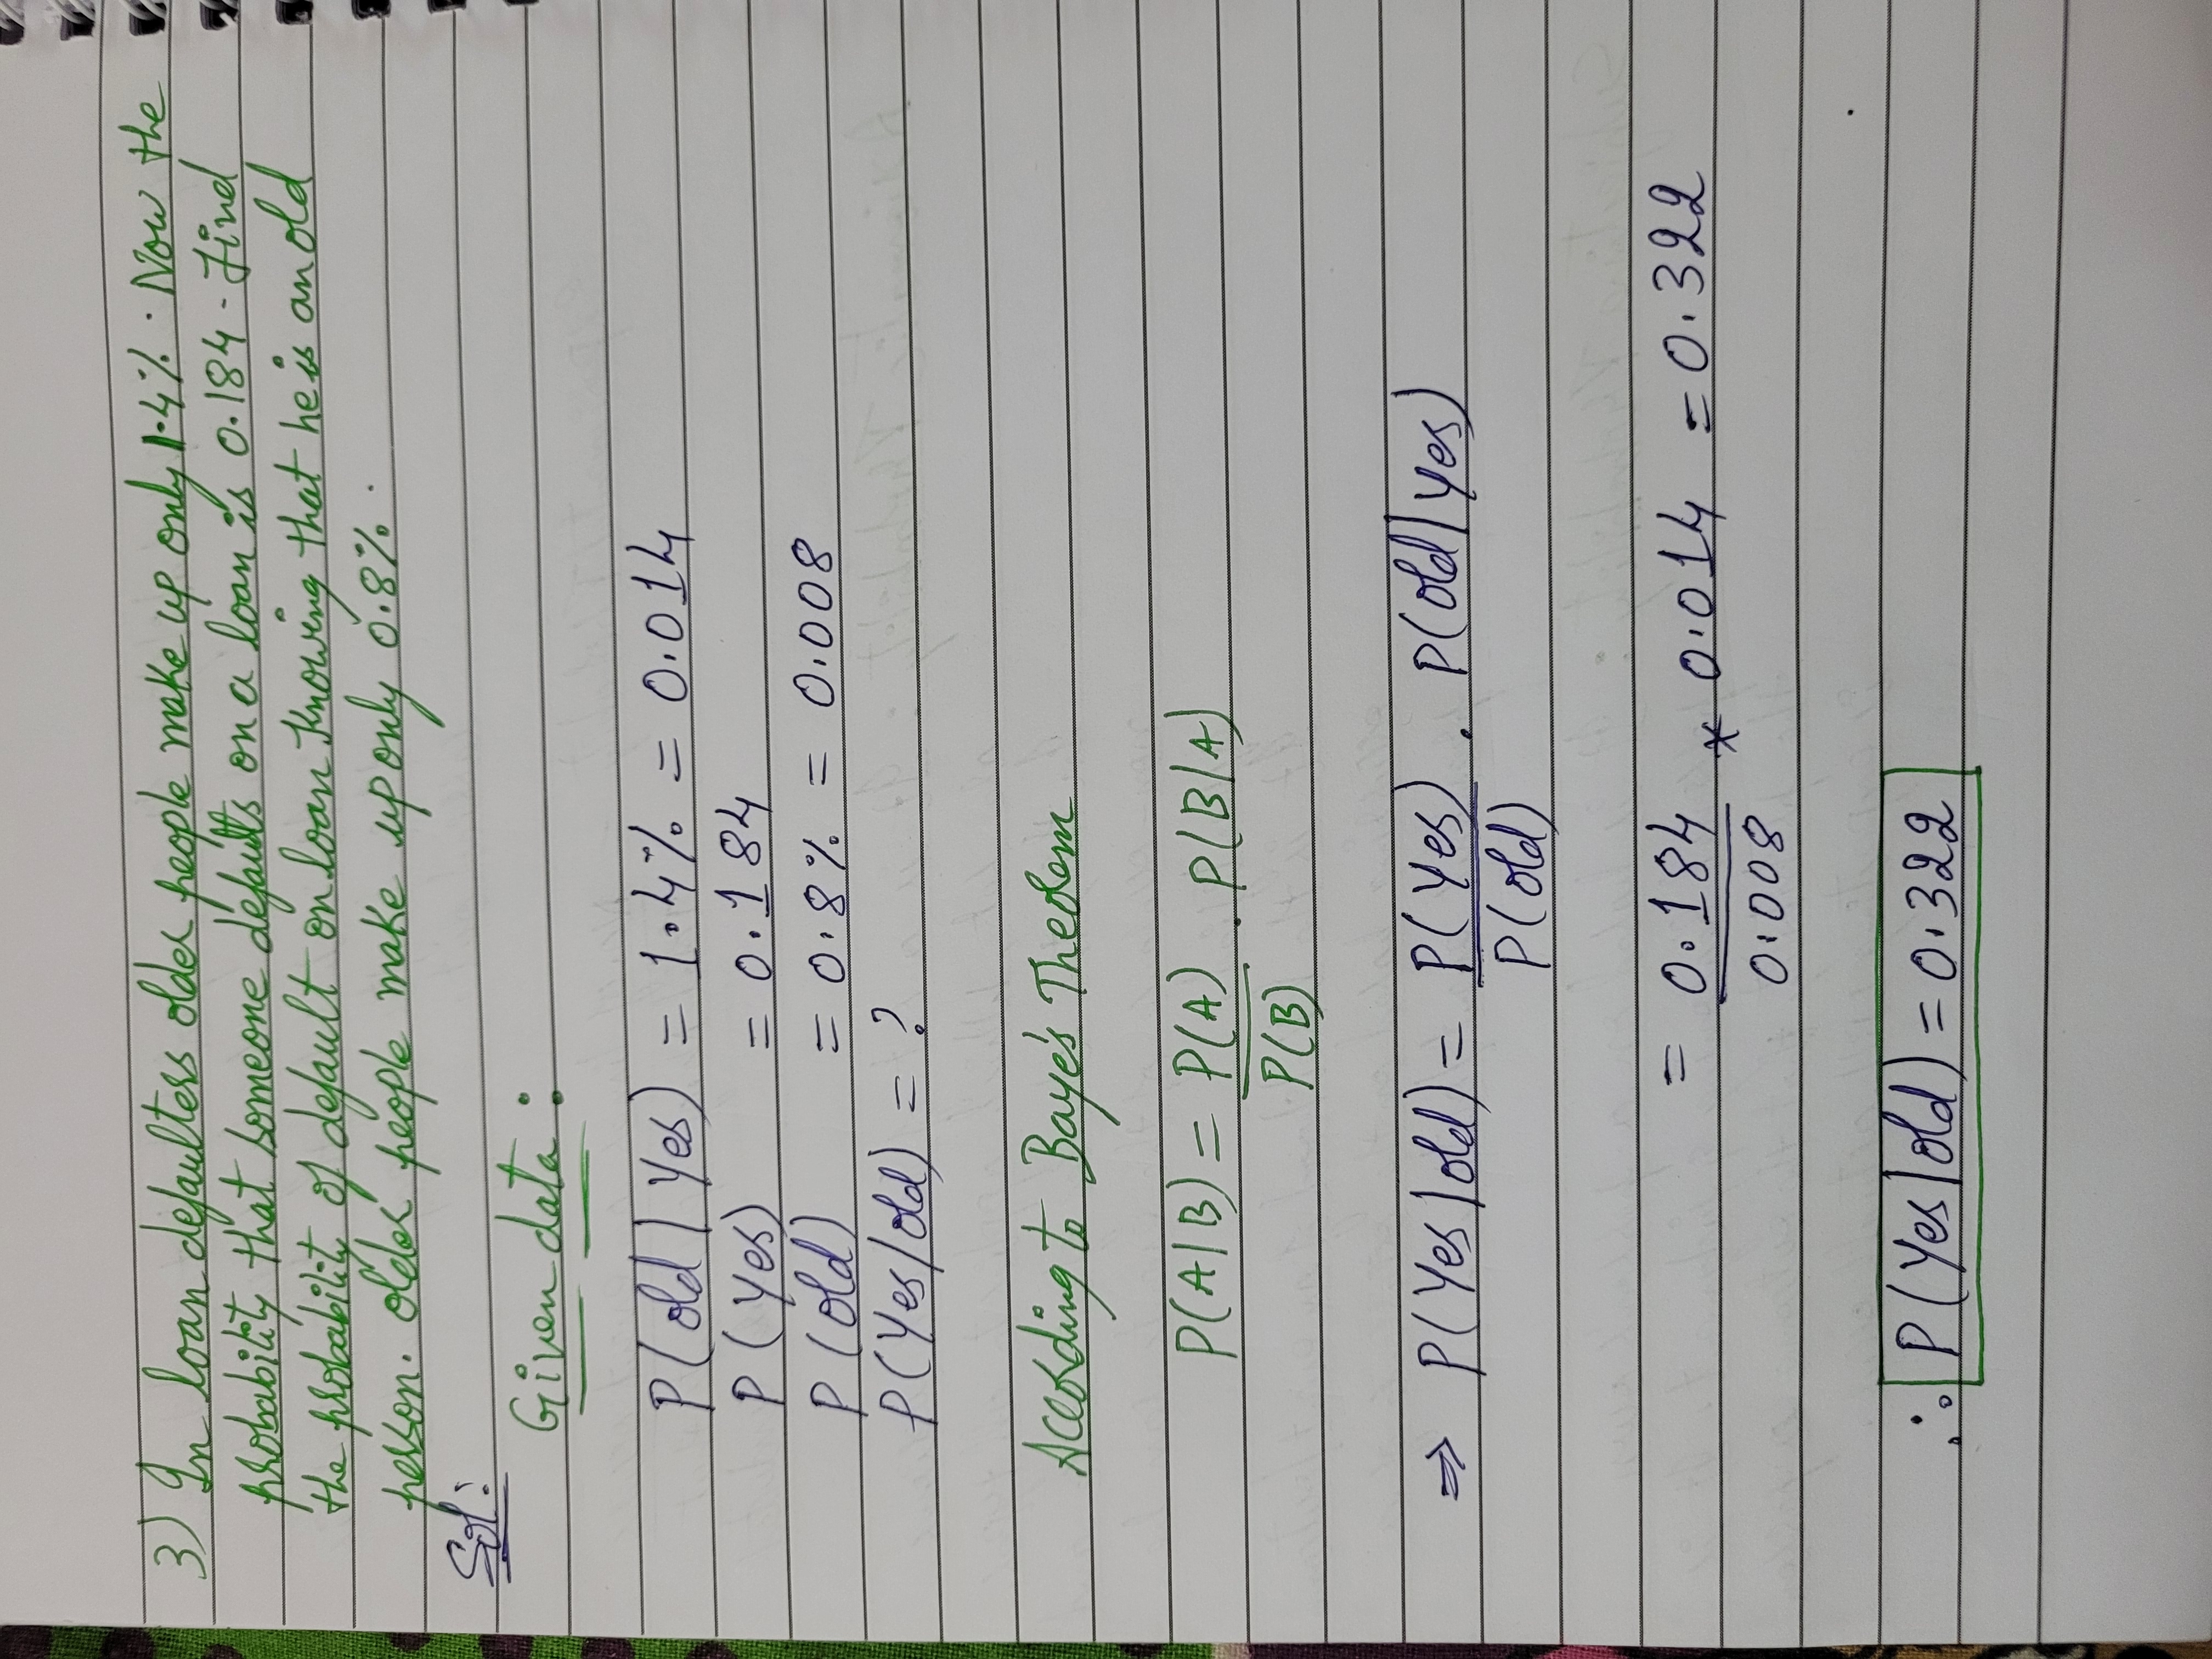 3) In loan defaulters older people make up only 1.4%. Now the
probability that someone defaults on a loan is 0.184. Find
the probability of default on loan knowing that he is an old
person. older people make up only 0.8%.
Sol:
Given data:
P(old | Yes) = 1.4% = 0.014
P(Yes) = 0.184
P(old) = 0.8% = 0.008
P(Yes/old) = ?
According to Baye's Theorem
P(A|B) = P(A) . P(B|A)
P(B)
⇒ P(Yes|old) = P(Yes) . P(old|yes)
P(old)
= 0.184 * 0.014 = 0.322
0.008
∴ P(Yes|old) = 0.322